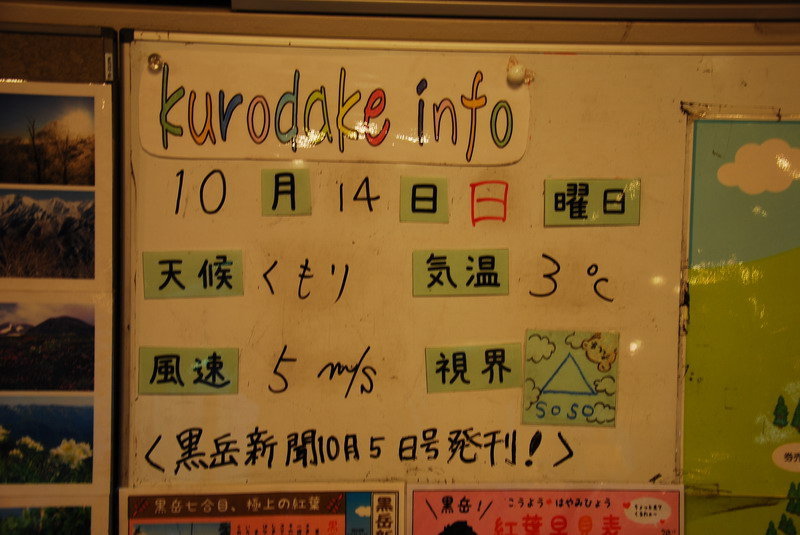 kurodake info
10 月 14 日 日 曜日
天候 くもり 気温 3℃
風速 5 m/s 視界 SOSO
〈黒岳新聞10月5日号発刊!〉
黒岳七合目、極上の紅葉
黒岳新
\黒岳!/ こうよう はやみひょう
紅葉早見表